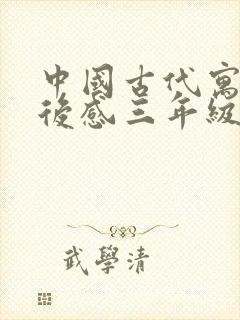 中國古代寓
後感三年級
武學清